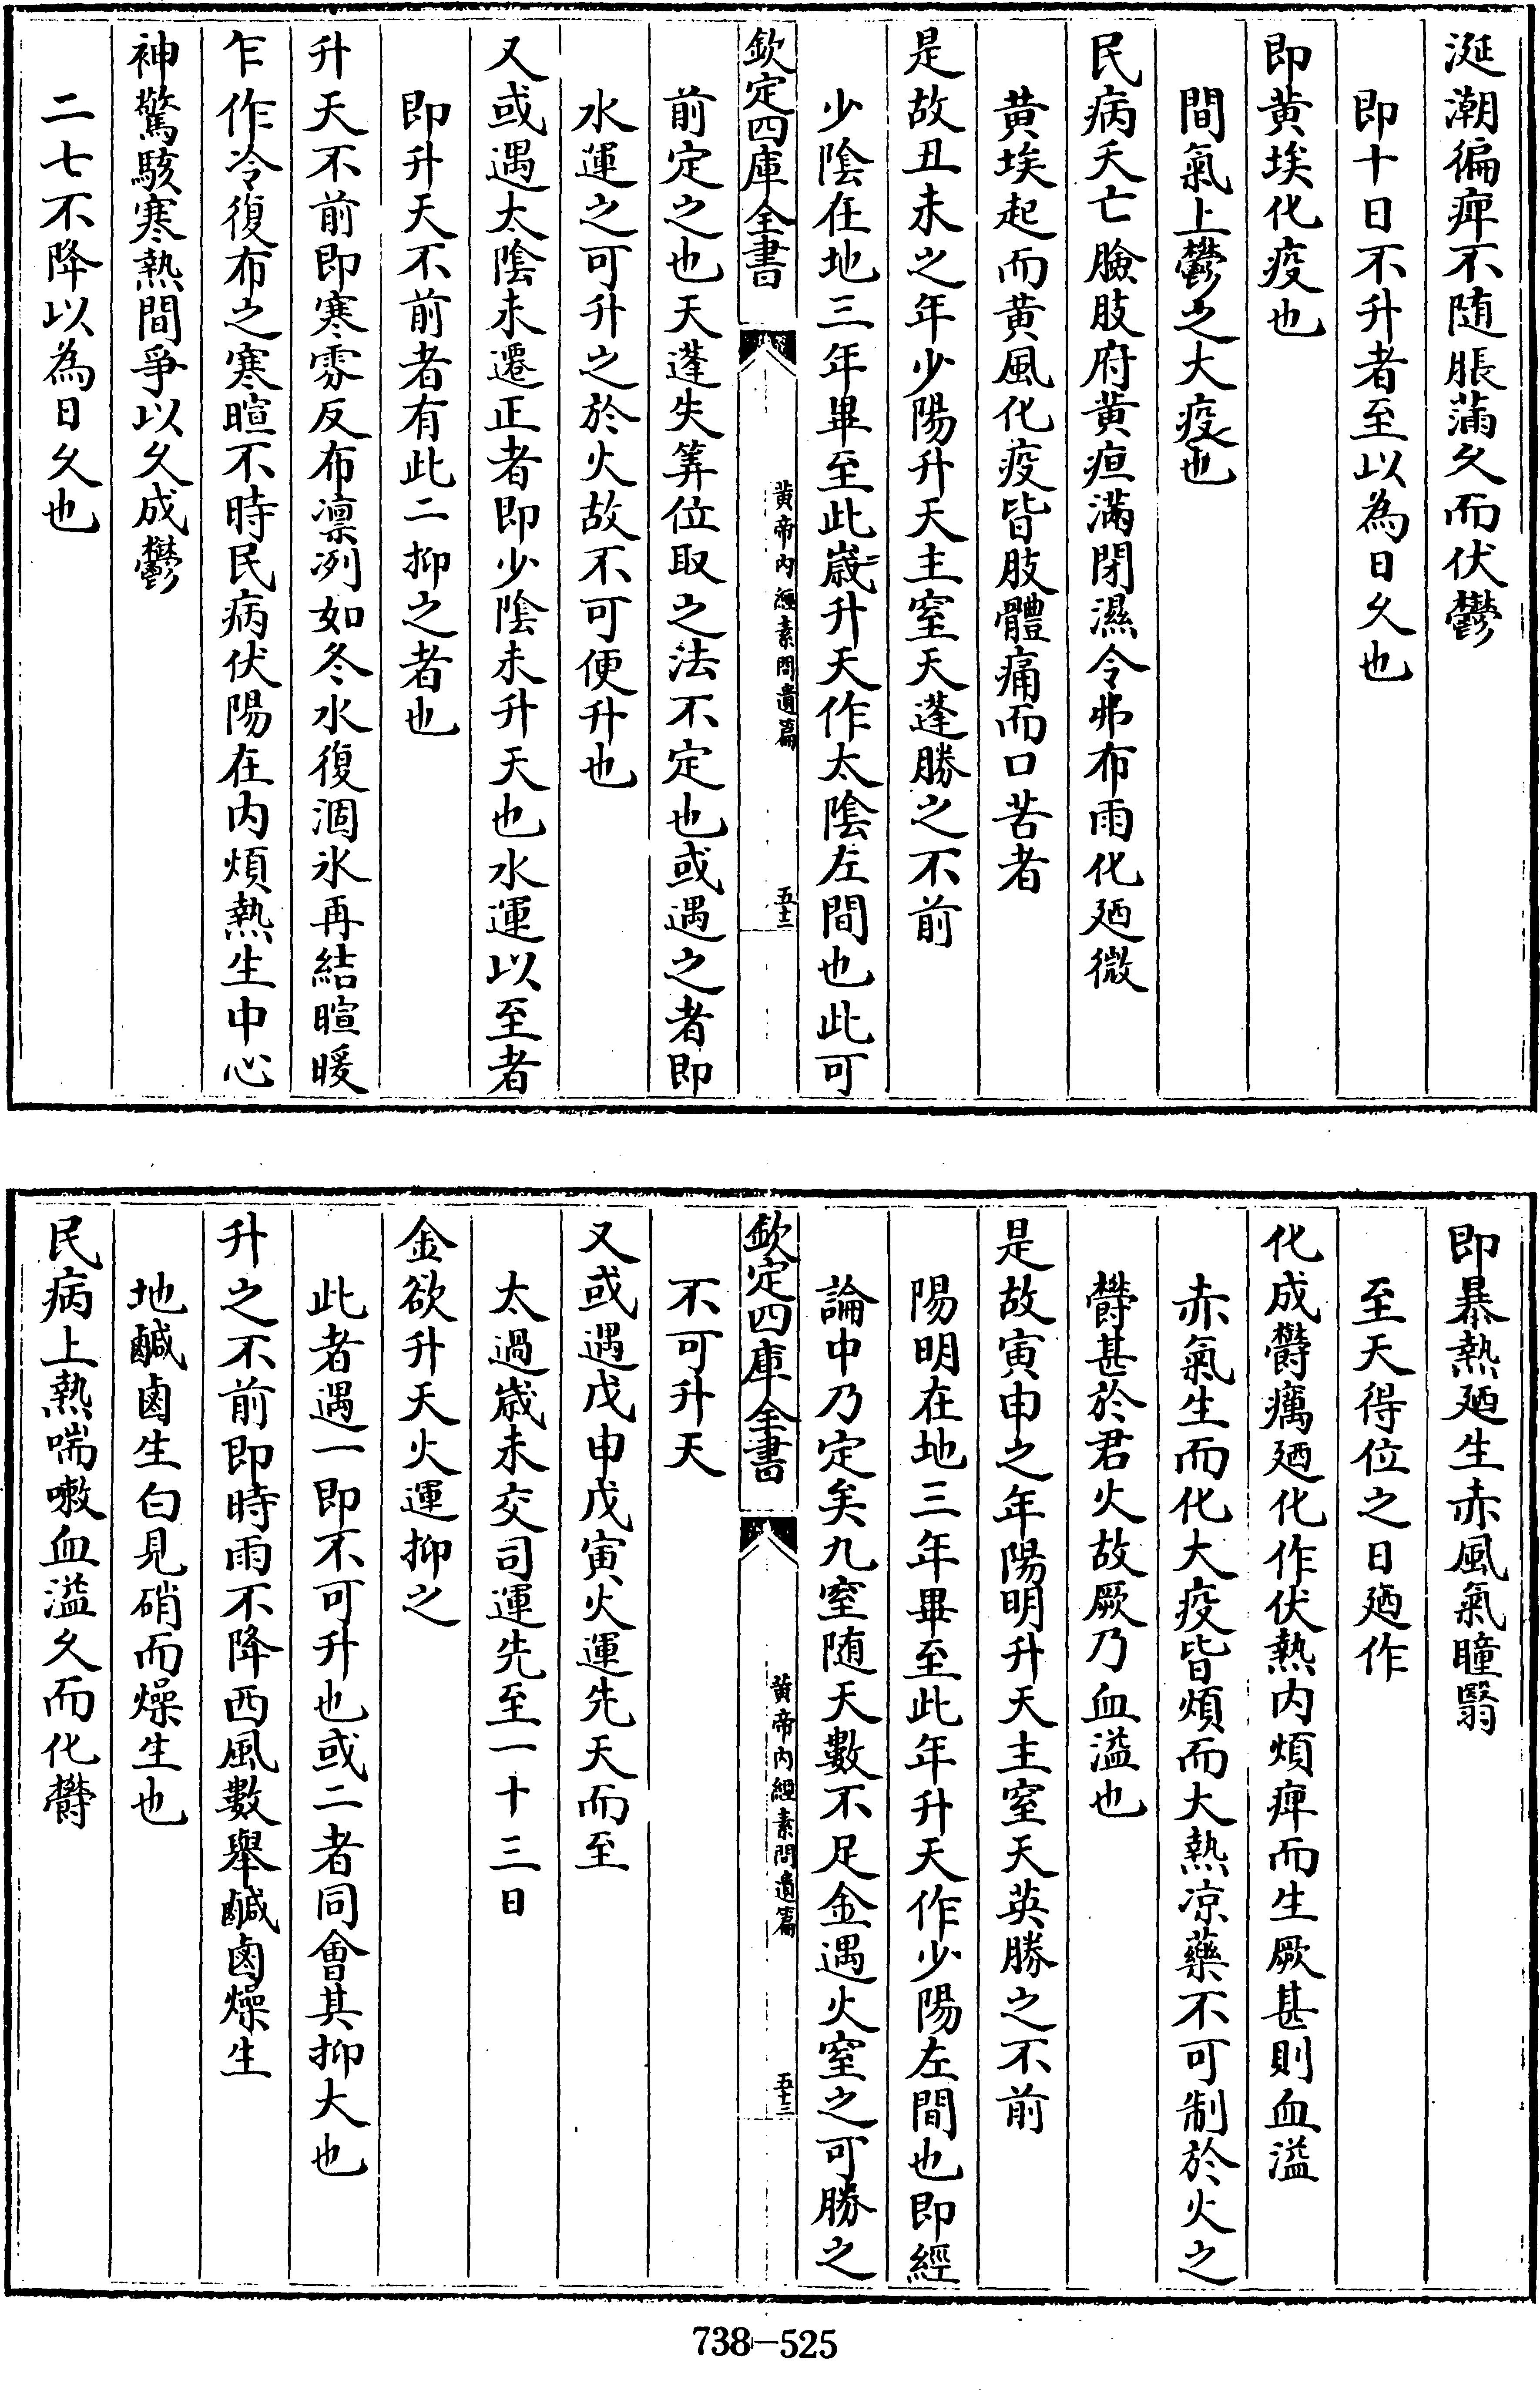 涎潮徧痺不随脹蒲久而伏鬱
即十日不升者至以為日久也
即黄埃化疫也
間氣上鬱之大疫也
民病夭亡臉肢府黄疸滿閉濕令弗布雨化廼微
黄埃起而黄風化疫皆肢體痛而口苦者
是故丑未之年少陽升天主窒天蓬勝之不前
少陰在地三年畢至此歳升天作太陰左間也此可
欽定四庫全書
黄帝内經素問遺篇
五十二
前定之也天蓬失筭位取之法不定也或遇之者即
水運之可升之於火故不可便升也
又或遇太陰未遷正者即少陰未升天也水運以至者
即升天不前者有此二抑之者也
升天不前即寒雰反布凛冽如冬水復涸氷再結暄暖
乍作冷復布之寒暄不時民病伏陽在内煩熱生中心
神驚駭寒熱間爭以久成鬱
二七不降以為日久也
即暴熱廼生赤風氣瞳翳
至天得位之日廼作
化成欝癘廼化作伏熱内煩痺而生厥甚則血溢
赤氣生而化大疫皆煩而大熱凉藥不可制於火之
欝甚於君火故厥乃血溢也
是故寅申之年陽明升天主窒天英勝之不前
陽明在地三年畢至此年升天作少陽左間也即經
論中乃定矣九窒随天數不足金遇火窒之可勝之
欽定四庫全書
黄帝内經素問遺篇
五十三
不可升天
又或遇戊申戊寅火運先天而至
太過歳未交司運先至一十三日
金欲升天火運抑之
此者遇一即不可升也或二者同會其抑大也
升之不前即時雨不降西風數舉鹹鹵燥生
地鹹鹵生白見硝而燥生也
民病上熱喘嗽血溢久而化欝
738-525